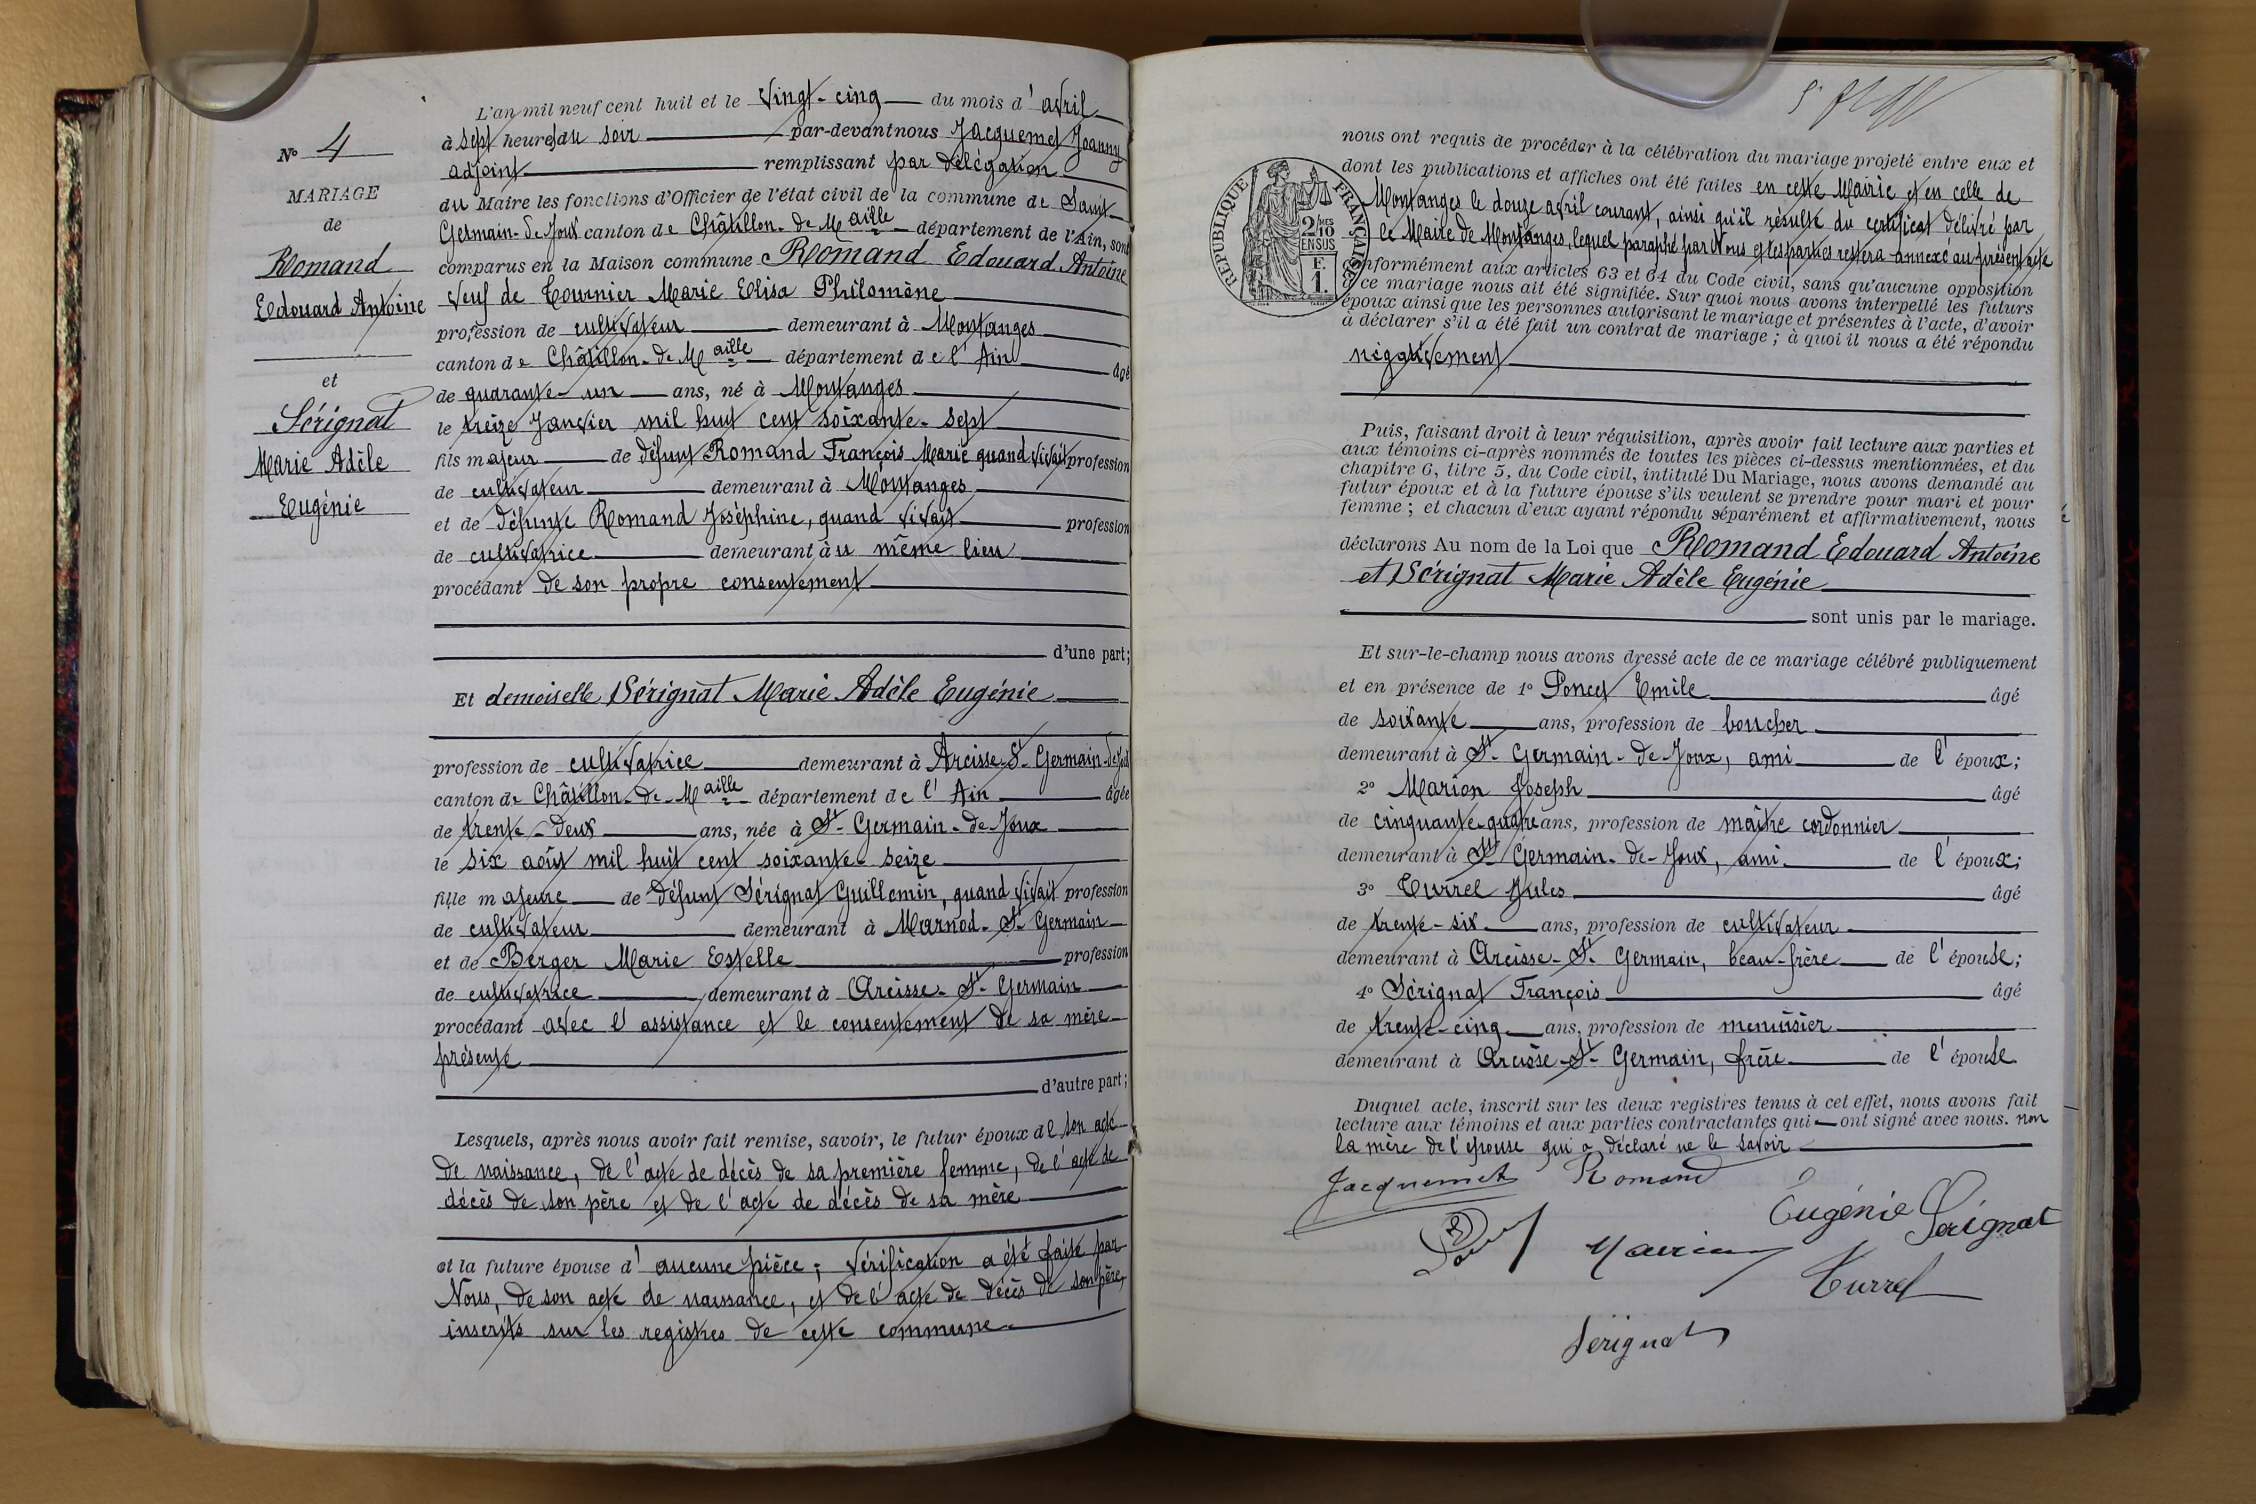 L'an mil neuf cent huit et le vingt-cinq du mois d'avril
à sept heures du soir par-devant nous Jacquemet Joanny
adjoint remplissant par délégation
du Maire les fonctions d'Officier de l'état civil de la commune de Saint-
Germain-de-Joux canton de Châtillon-de-Maille département de l'Ain, sont
comparus en la Maison commune Romand Edouard Antoine
veuf de Tournier Marie Elisa Philomène
profession de cultivateur demeurant à Montanges
canton de Châtillon-de-Maille département de l'Ain âgé
de quarante-un ans, né à Montanges
le treize Janvier mil huit cent soixante-sept
fils majeur de défunt Romand François Marie quand vivait profession
de cultivateur demeurant à Montanges
et de défunte Romand Joséphine, quand vivait profession
de cultivatrice demeurant au même lieu
procédant de son propre consentement
d'une part;
Et demoiselle Sérignat Marie Adèle Eugénie
profession de cultivatrice demeurant à Arcisse-St-Germain-de-Joux
canton de Châtillon-de-Maille département de l'Ain âgée
de trente-deux ans, née à St-Germain-de-Joux
le six août mil huit cent soixante-seize
fille majeure de défunt Sérignat Guillemin, quand vivait profession
de cultivateur demeurant à Marnod-St-Germain
et de Berger Marie Estelle profession
de cultivatrice demeurant à Arcisse-St-Germain
procédant avec l'assistance et le consentement de sa mère
présente
d'autre part;
Lesquels, après nous avoir fait remise, savoir, le futur époux de son acte
de naissance, de l'acte de décès de sa première femme, de l'acte de
décès de son père et de l'acte de décès de sa mère
et la future épouse d'aucune pièce; vérification a été faite par
Nous, de son acte de naissance, et de l'acte de décès de son père,
inscrits sur les registres de cette commune
No 4
MARIAGE
de
Romand
Edouard Antoine
et
Sérignat
Marie Adèle
Eugénie
nous ont requis de procéder à la célébration du mariage projeté entre eux et
dont les publications et affiches ont été faites en cette Mairie et en celle de
Montanges le douze avril courant, ainsi qu'il résulte du certificat délivré par
le Maire de Montanges, lequel paraphé par Nous et les parties restera annexé au présent acte
conformément aux articles 63 et 64 du Code civil, sans qu'aucune opposition
à ce mariage nous ait été signifiée. Sur quoi nous avons interpellé les futurs
époux ainsi que les personnes autorisant le mariage et présentes à l'acte, d'avoir
à déclarer s'il a été fait un contrat de mariage; à quoi il nous a été répondu
négativement
RÉPUBLIQUE FRANÇAISE
2 MES
10
EN SUS
F.
1.
Puis, faisant droit à leur réquisition, après avoir fait lecture aux parties et
aux témoins ci-après nommés de toutes les pièces ci-dessus mentionnées, et du
chapitre 6, titre 5, du Code civil, intitulé Du Mariage, nous avons demandé au
futur époux et à la future épouse s'ils veulent se prendre pour mari et pour
femme; et chacun d'eux ayant répondu séparément et affirmativement, nous
déclarons Au nom de la Loi que Romand Edouard Antoine
et Sérignat Marie Adèle Eugénie
sont unis par le mariage.
Et sur-le-champ nous avons dressé acte de ce mariage célébré publiquement
et en présence de 1° Poncet Emile âgé
de soixante ans, profession de boucher
demeurant à St-Germain-de-Joux, ami de l'époux;
2° Marion Joseph âgé
de cinquante-quatre ans, profession de maître cordonnier
demeurant à St-Germain-de-Joux, ami de l'époux;
3° Turrel Jules âgé
de trente-six ans, profession de cultivateur
demeurant à Arcisse-St-Germain, beau-frère de l'épouse;
4° Sérignat François âgé
de trente-cinq ans, profession de menuisier
demeurant à Arcisse-St-Germain, frère de l'épouse
Duquel acte, inscrit sur les deux registres tenus à cet effet, nous avons fait
lecture aux témoins et aux parties contractantes qui ont signé avec nous. non
la mère de l'épouse qui a déclaré ne le savoir
Jacquemet Romand
Eugénie Sérignat
Marion
Turrel
Sérignat